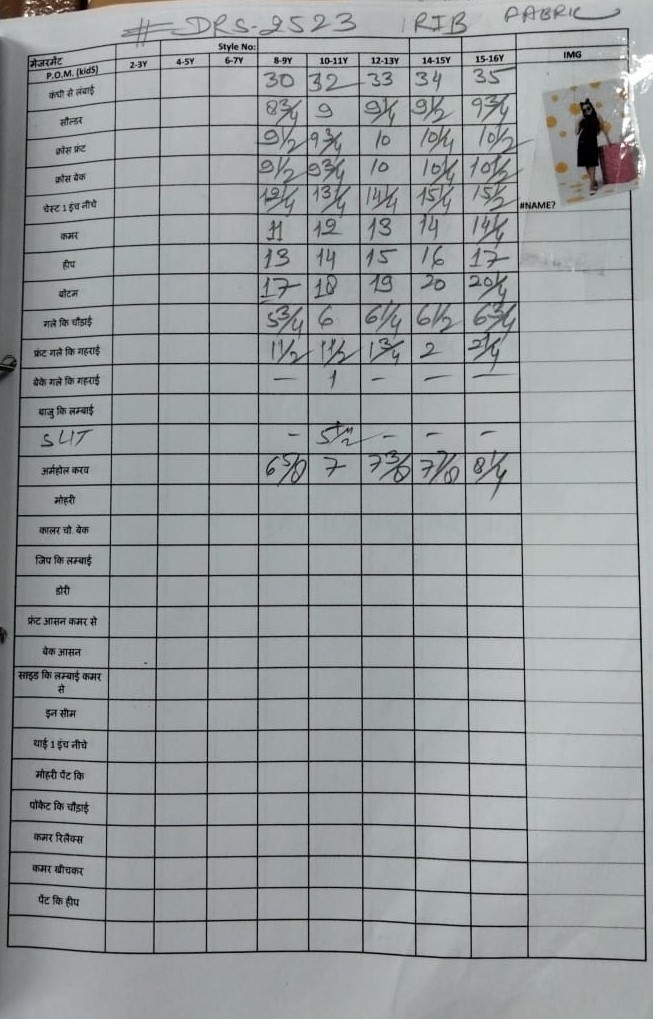 # DRS-2523 RIB FABRIC
मेजरमेंट Style No:
P.O.M. (kidS) 2-3Y 4-5Y 6-7Y 8-9Y 10-11Y 12-13Y 14-15Y 15-16Y IMG
कंधी से लंबाई 30 32 33 34 35
सौल्डर 8 3/4 9 9 1/4 9 1/2 9 3/4
क्रोस फ्रंट 9 1/2 9 3/4 10 10 1/4 10 1/2
क्रोस बेक 9 1/2 9 3/4 10 10 1/4 10 1/2
चेस्ट 1 इंच नीचे 12 1/4 13 1/4 14 1/4 15 1/4 15 1/2 #NAME?
कमर 11 12 13 14 14 1/4
हीप 13 14 15 16 17
बोटम 17 18 19 20 20 1/4
गले कि चौडाई 5 3/4 6 6 1/4 6 1/2 6 3/4
फ्रंट गले कि गहराई 1 1/2 1 1/2 1 3/4 2 2 1/4
बेके गले कि गहराई - 1 - - -
बाजु कि लम्बाई
SLIT - 5 1/2" - - -
अर्महोल करव 6 5/8 7 7 3/8 7 7/8 8 1/4
मोहरी
कालर चौ. बेक
जिप कि लम्बाई
डोरी
फ्रंट आसन कमर से
बेक आसन
साइड कि लम्बाई कमर
से
इन सीम
थाई 1 इंच नीचे
मोहरी पेंट कि
पॉकेट कि चौड़ाई
कमर रिलैक्स
कमर खीचकर
पेंट कि हीप